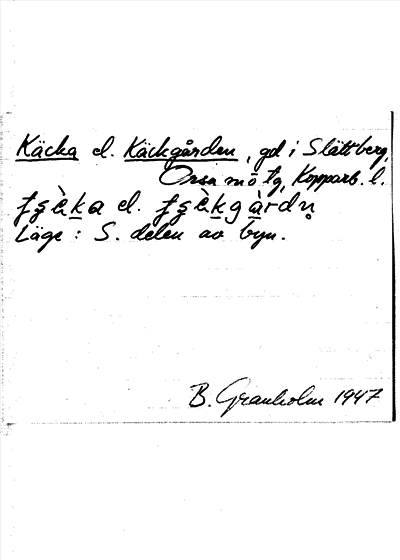 Käcka el. Käckgården, gd i Slättberg,
Orsa sn o tg, Kopparb. l.
el.
Läge: S. delen av byn.
B. Granholm 1947